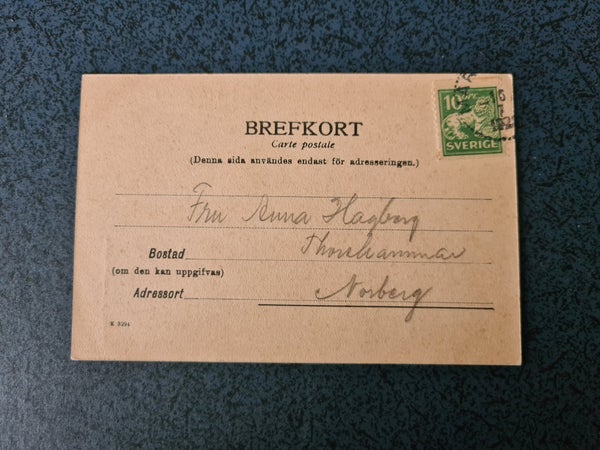 10 öre
SVERIGE
BREFKORT
Carte postale
(Denna sida användes endast för adresseringen.)
Fru Anna Hagborg
Bostad Thorshammar
(om den kan uppgifvas)
Adressort Norberg
K 3294